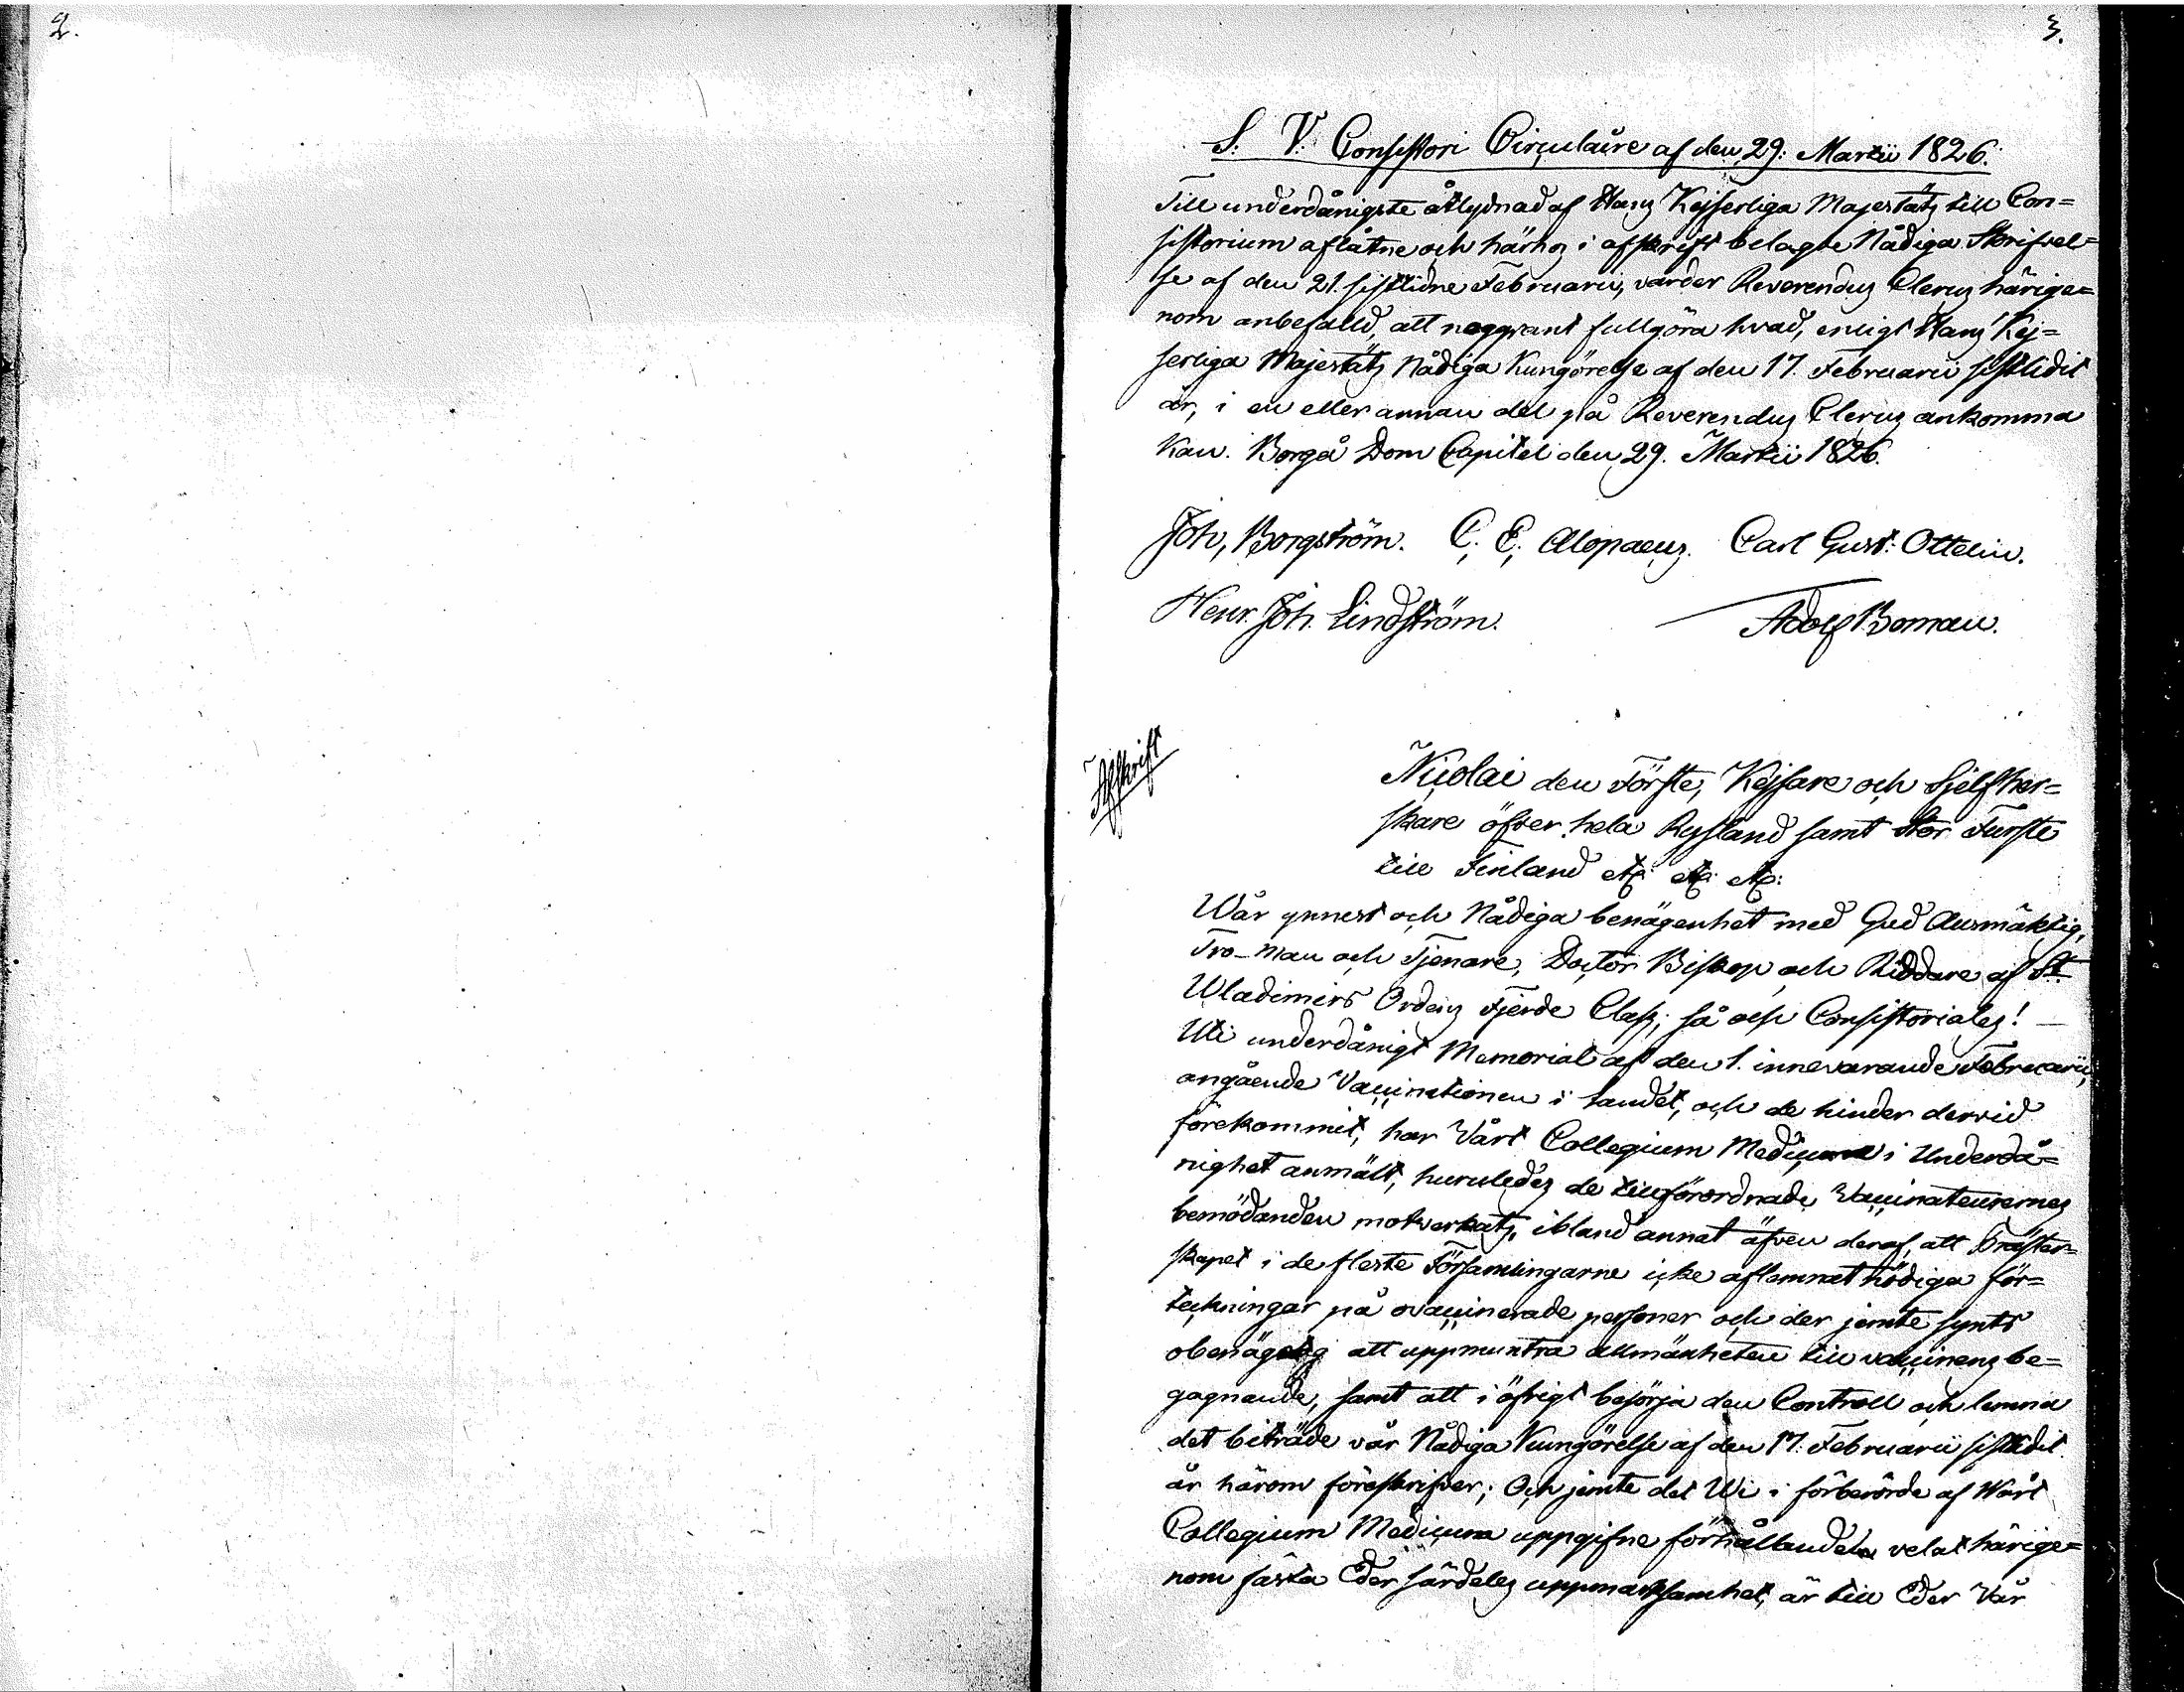 2.
3.
S: V: Consistori Circulaire af den 29: Martii 1826.
Till underdånigste åtlydnad af Hans Kejserliga Majestäts till Con=
sistorium aflåtne och härhos i afskrift belagde Nådiga Skrifvel=
se af den 21. sistlidne Februarii, varder Reverendus Clerus härige=
nom anbefalld, att noggrant fullgöra hvad, enligt Hans Kej=
serliga Majestäts Nådiga Kungörelse af den 17. Februarii sistlidit
år, i en eller annan del på Reverendus Clerus ankomma
Kan. Borgå Dom Capitel den 29. Martii 1826.
Joh, Borgström. C. E. Alopaeus. Carl Gust: Ottelin.
Henr. Joh. Lindström. Adolf Boman.
Afskrift
Nicolai den Förste, Kejsare och Sjelfher=
skare öfver hela Ryssland samt Stor Furste
till Finland etc: etc: etc:
Wår ynnest och Nådiga benägenhet med Gud Allsmäktig,
Tro-Man och Tjenare, Doctor Biskop och Riddare af St
Wladimirs Ordens Fjerde Class, så och Consistoriales! —
Uti underdånigt Memorial af den 1. innevarande Februarii,
angående Vaccinationen i landet, och de hinder dervid
förekommit, har Vårt Collegium Medicum i Underdå=
nighet anmält, huruledes de tillförordnade Vaccinateurernes
bemödanden motverkats, ibland annat äfven deraf, att Präster=
skapet i de fleste Församlingarne icke aflemnat nödiga för=
teckningar på ovaccinerade personer och der jemte synts
obenäget att uppmuntra allmänheten till vaccinens be=
gagnande, samt att i öfrigt besörja den Controll och lemna
det biträde vår Nådiga Kungörelse af den 17. Februarii sistlidit
år härom föreskrifver; Och jemte det Wi i förberörde af Wårt
Collegium Medicum uppgifne förhållanden velat härige=
nom fästa Eder särdeles uppmärksamhet, är till Eder Vår